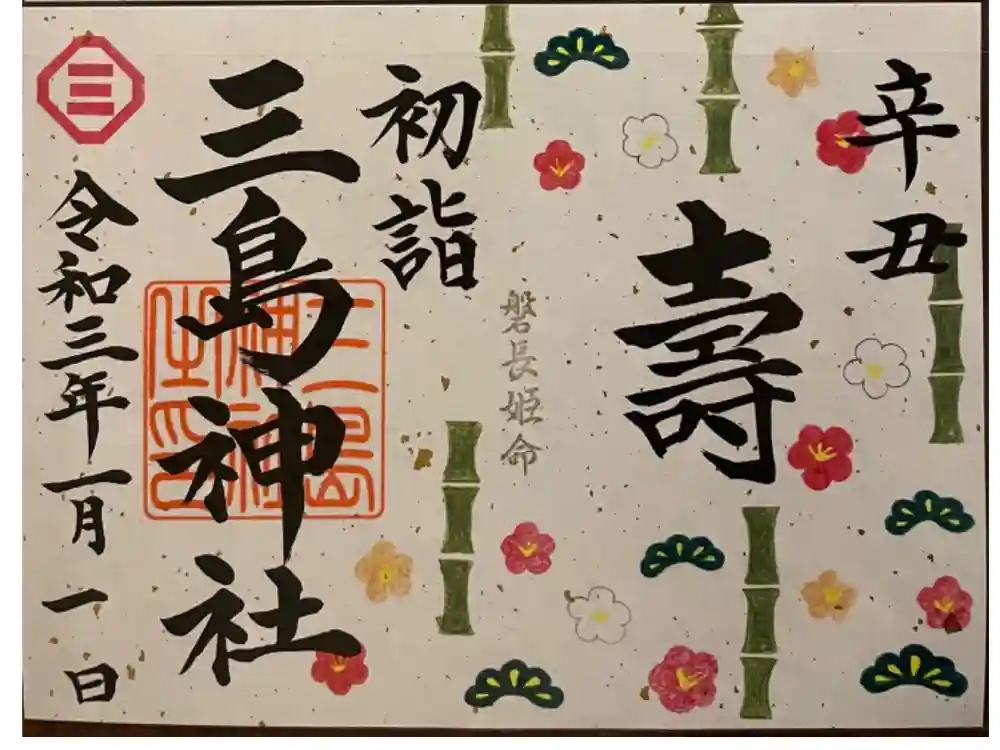 辛丑
壽
磐長姫命
初詣
三島神社
三島神社之印
三
令和三年一月一日